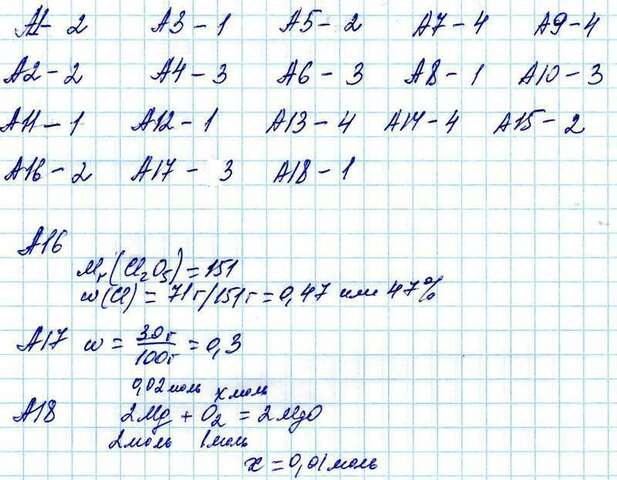 А1-2 А3-1 А5-2 А7-4 А9-4
А2-2 А4-3 А6-3 А8-1 А10-3
А11-1 А12-1 А13-4 А14-4 А15-2
А16-2 А17-3 А18-1
А16
Mr(Cl₂O₅)=151
w(Cl)=71г/151г=0,47 или 47%
А17 w=30г/100г=0,3
0,02моль x моль
А18 2Mg+O₂=2MgO
2моль 1моль
x=0,01моль